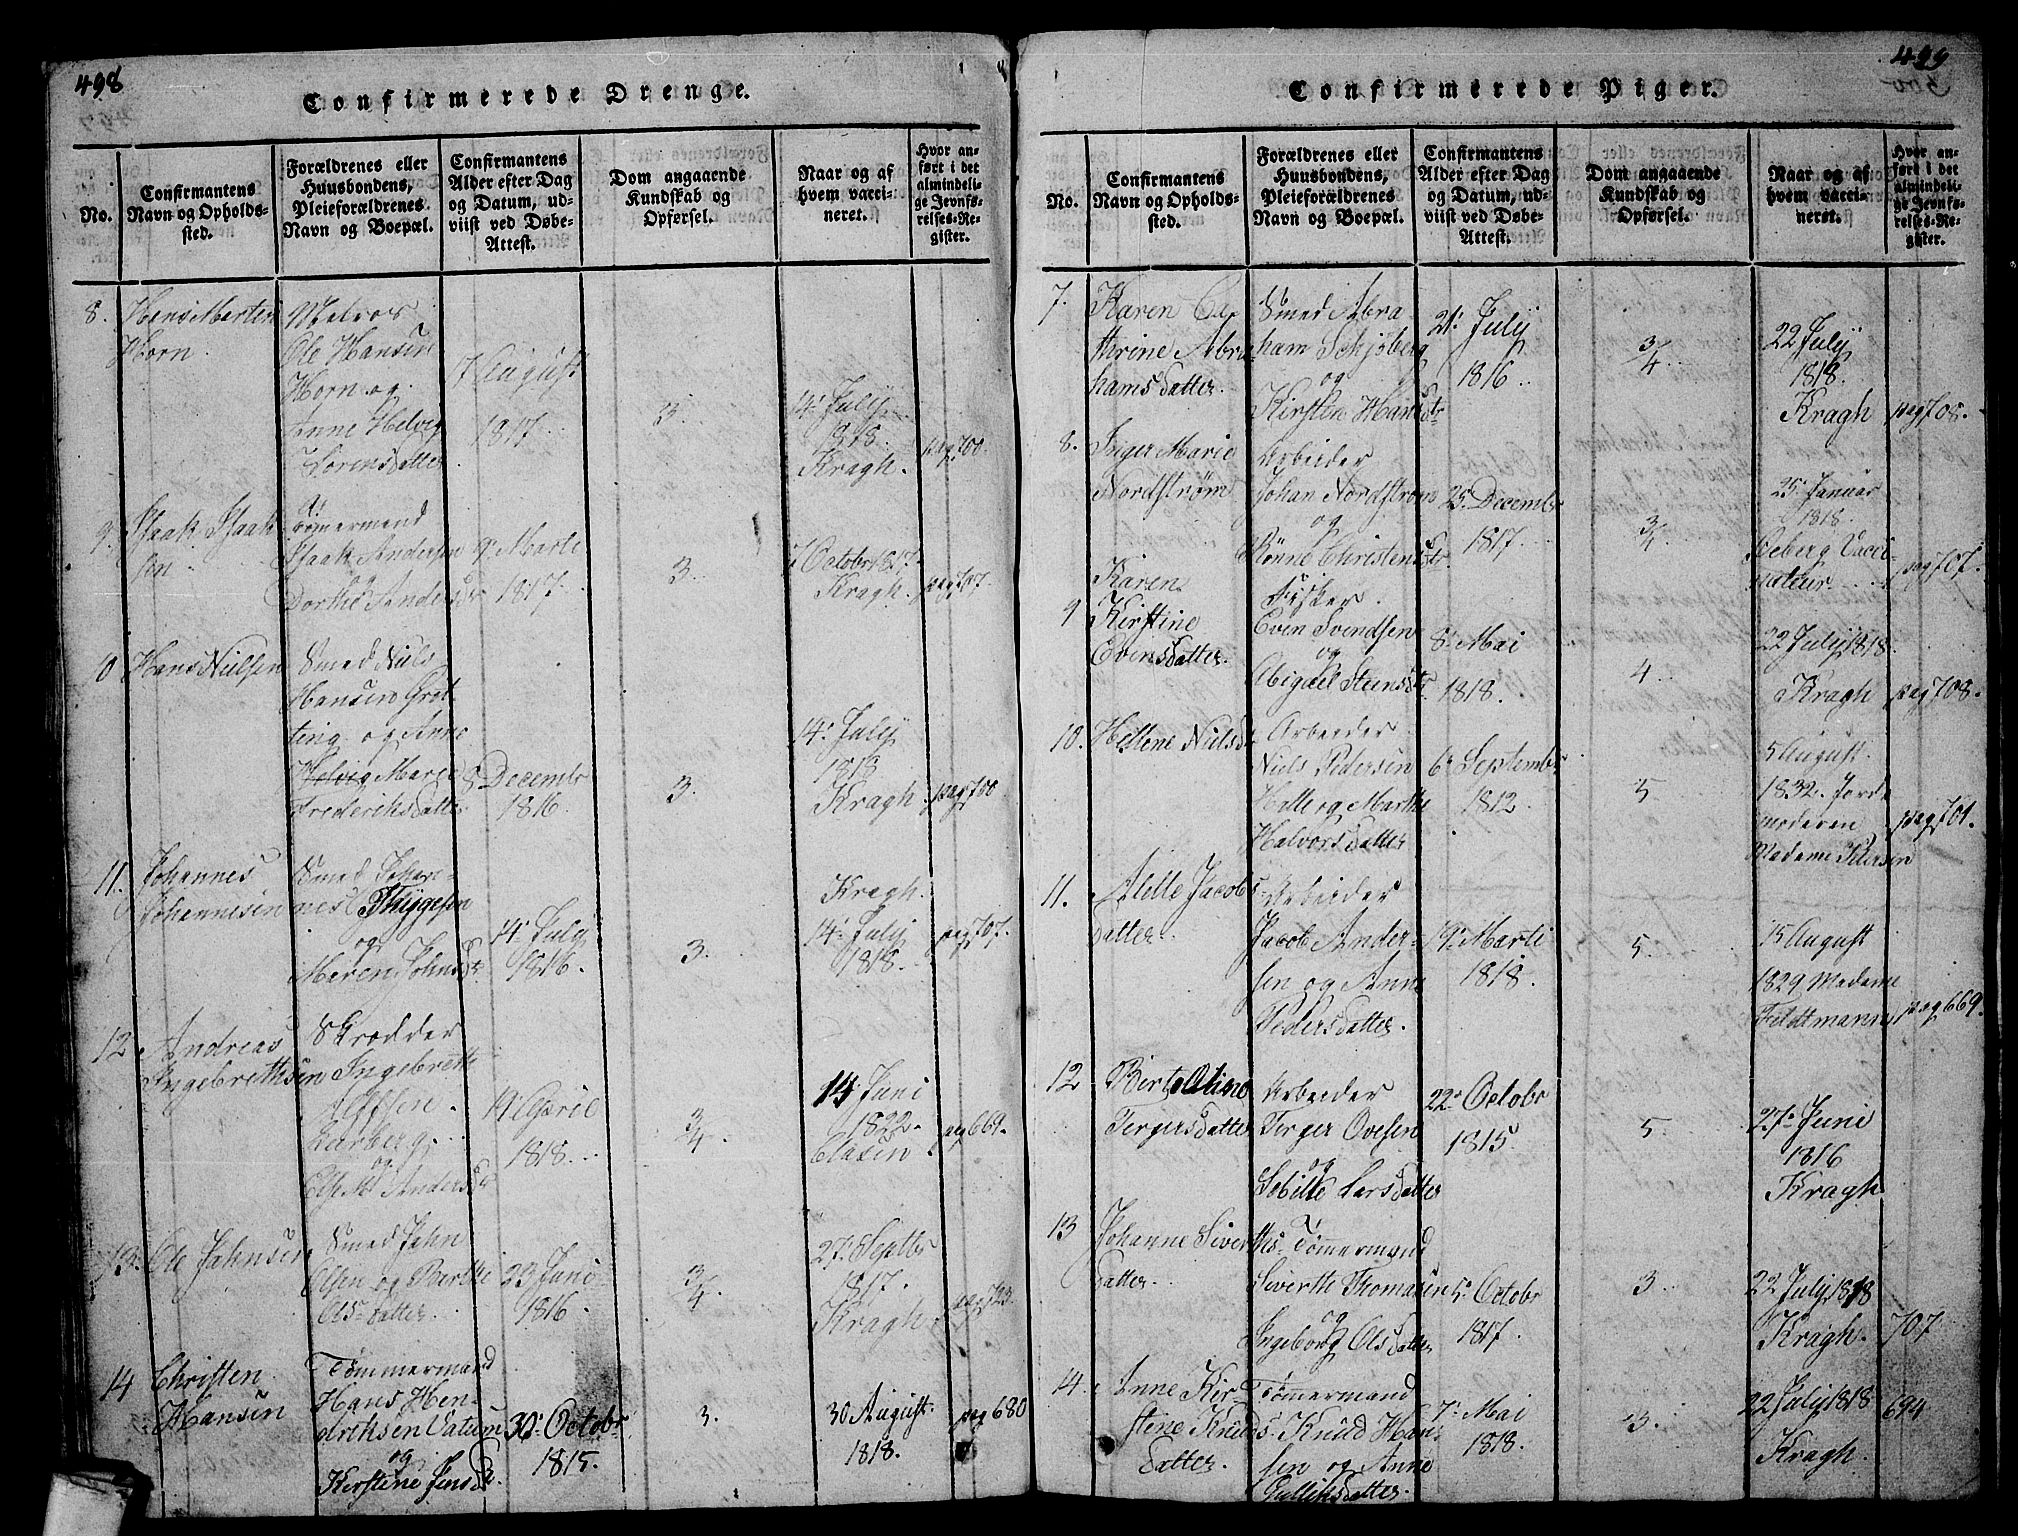 498
Confirmerede Drenge.
No.
Confirmantens
Navn og Opholds-
sted.
Forældrenes eller
Huusbondens,
Pleieforældrenes
Navn og Boepæl.
Confirmantens
Alder efter Dag
og Datum, ud-
viist ved Døbe-
Attest.
Dom angaaende
Kundskab og
Opførsel.
Naar og af
hvem vacci-
neret.
Hvor an-
ført i det
almindeli-
ge Jevnfø-
relses-Re-
gister.
8.
Hans Morten
Horn.
Matros
Ole Hansen
Horn og
Anne Helvig
Lorensdatter
17 August
1817
3.
14. Julij
1818.
Kragh.
pag 700.
9.
Isaak Isaak
sen
Tømermand
Isaak Andersen
og
Dorthe Andersdr
9. Marti
1817.
3.
7 Octobr 1817.
Kragh.
pag 707.
10
Hans Nielsen
Smed Niels
Hansen Grøt
ting og Anne
Helvig Marie
Frederiksdatter
8 Decembr
1816.
3.
14. Julij
1818
Kragh.
pag 700
11.
Johannes
Johannesen
Smed Johan-
nes Thygesen
og
Maren Johnsdr
14. Julij
1816.
3.
Kragh.
14. Julij
1818.
pag 707.
12
Andreas
Ingebrethsen
Skrædder
Ingebreth
Alffsen
Aarberg
og
Else M Andersdr
19. April
1818.
3/4.
14 Juni
1822.
Clasen
pag 669.
13.
Ole Jahnsen
Smed Jahn
Olsen og Berthe
Olsdatter
23 Juni
1816.
3/4
27. Septbr
1817.
Kragh.
pag 723
14
Christen
Hansen
Tømmermand
Hans Hen-
driksen Vatum
og
Kirstine Jensdr.
30. Octobr
1815.
3.
30 August
1818.
pag 680
499
Confirmerede Piger.
No.
Confirmantens
Navn og Opholds-
sted.
Forældrenes eller
Huusbondens,
Pleieforældrenes
Navn og Boepæl.
Confirmantens
Alder efter Dag
og Datum, ud-
viist ved Døbe-
Attest.
Dom angaaende
Kundskab og
Opførsel.
Naar og af
hvem vacci-
neret.
Hvor an-
ført i det
almindeli-
ge Jevnfø-
relses-Re-
gister.
7.
Karen Ca
thrine Abra
hamsdatter.
Smed Abra
ham Schjøberg
og
Kirsten Hansdtr
21. Julij
1816.
3/4
22 Julij
1818.
Kragh
pag 708.
8.
Inger Marie
Nordstrøm
Arbeider
Johan Nordstrøm
og
Rønne Christensdtr.
25. Decembr
1817.
3/4
25. Januar
1818.
Oeberg Vacci
nateur.
pag 707.
9
Karen
Kirstine
Evensdatter.
Fisker
Even Svendsen
og
Abigael Steensdtr
8. Mai
1818.
4
22 Julij 1818.
Kragh
pag 708.
10.
Hellene Nielsdr
Arbeider
Niels Pedersen
Holt og Marthe
Halvorsdatter
6. Septembr
1812.
5
5 August
1832. Jorde
moderen
Madame Petersen
pag 701.
11.
Alette Jacobs-
datter.
Arbeider
Jacob Ander-
sen og Anne
Pedersdatter.
19. Marti
1818.
5.
15 August
1829 Madame
Feldtmann
pag 669.
12
Birte Oline
Tergersdatter
Arbeider
Terger Ovesen
og
Sebille Larsdatter
22. Octobr
1815.
5.
27. Juni
1816
Kragh
13
Johanne Siverths-
datter.
Tømmermand
Siverth Thomasen
og
Ingeborg Olsdatter
5. Octobr
1817.
3
22 Julij 1818
Kragh.
707
14.
Anne Kir-
stine Knuds-
datter.
Tømmermand
Knud Han-
sen og Anne
Gulliksdatter.
7. Mai
1818.
3.
22 Julij 1818
Kragh.
694